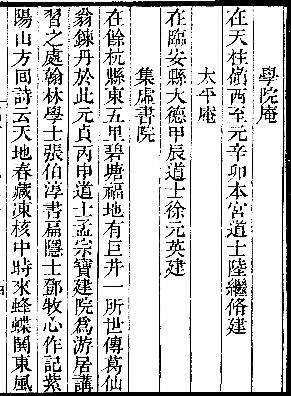 學院庵
在天柱嶺西至元辛卯本宮道士陸繼脩建
太平庵
在臨安縣大德甲辰道士徐元英建
集虛書院
在餘杭縣東五里碧壇福地有巨井一所世傳葛仙
翁鍊丹於此元貞丙申道士孟宗寶建院爲游居講
習之處翰林學士張伯淳書扁隱士鄧牧心作記紫
陽山方囘詩云天地春藏凍核中時來蜂蝶鬧東風